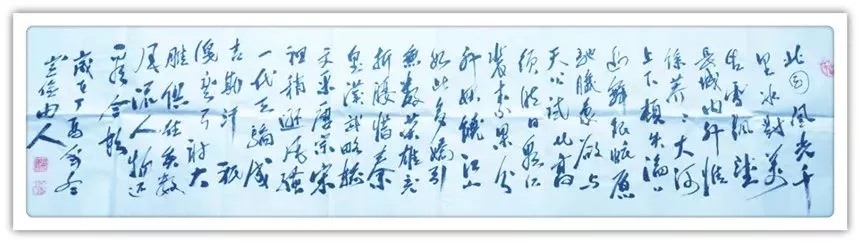 北国风光千
里冰封万
里雪飘望
长城内外惟
余莽々大河
上下顿失滔々
山舞银蛇原
驰腊象欲与
天公试比高
须晴日看红
装素裹分
外妖娆江山
如此多娇引
无数英雄竞
折腰惜秦
皇汉武略输
文采唐宗宋
祖稍逊风骚
一代天骄成
吉思汗 祇
识弯弓射大
雕俱往矣数
风流人物还
看今朝
岁在丁
人